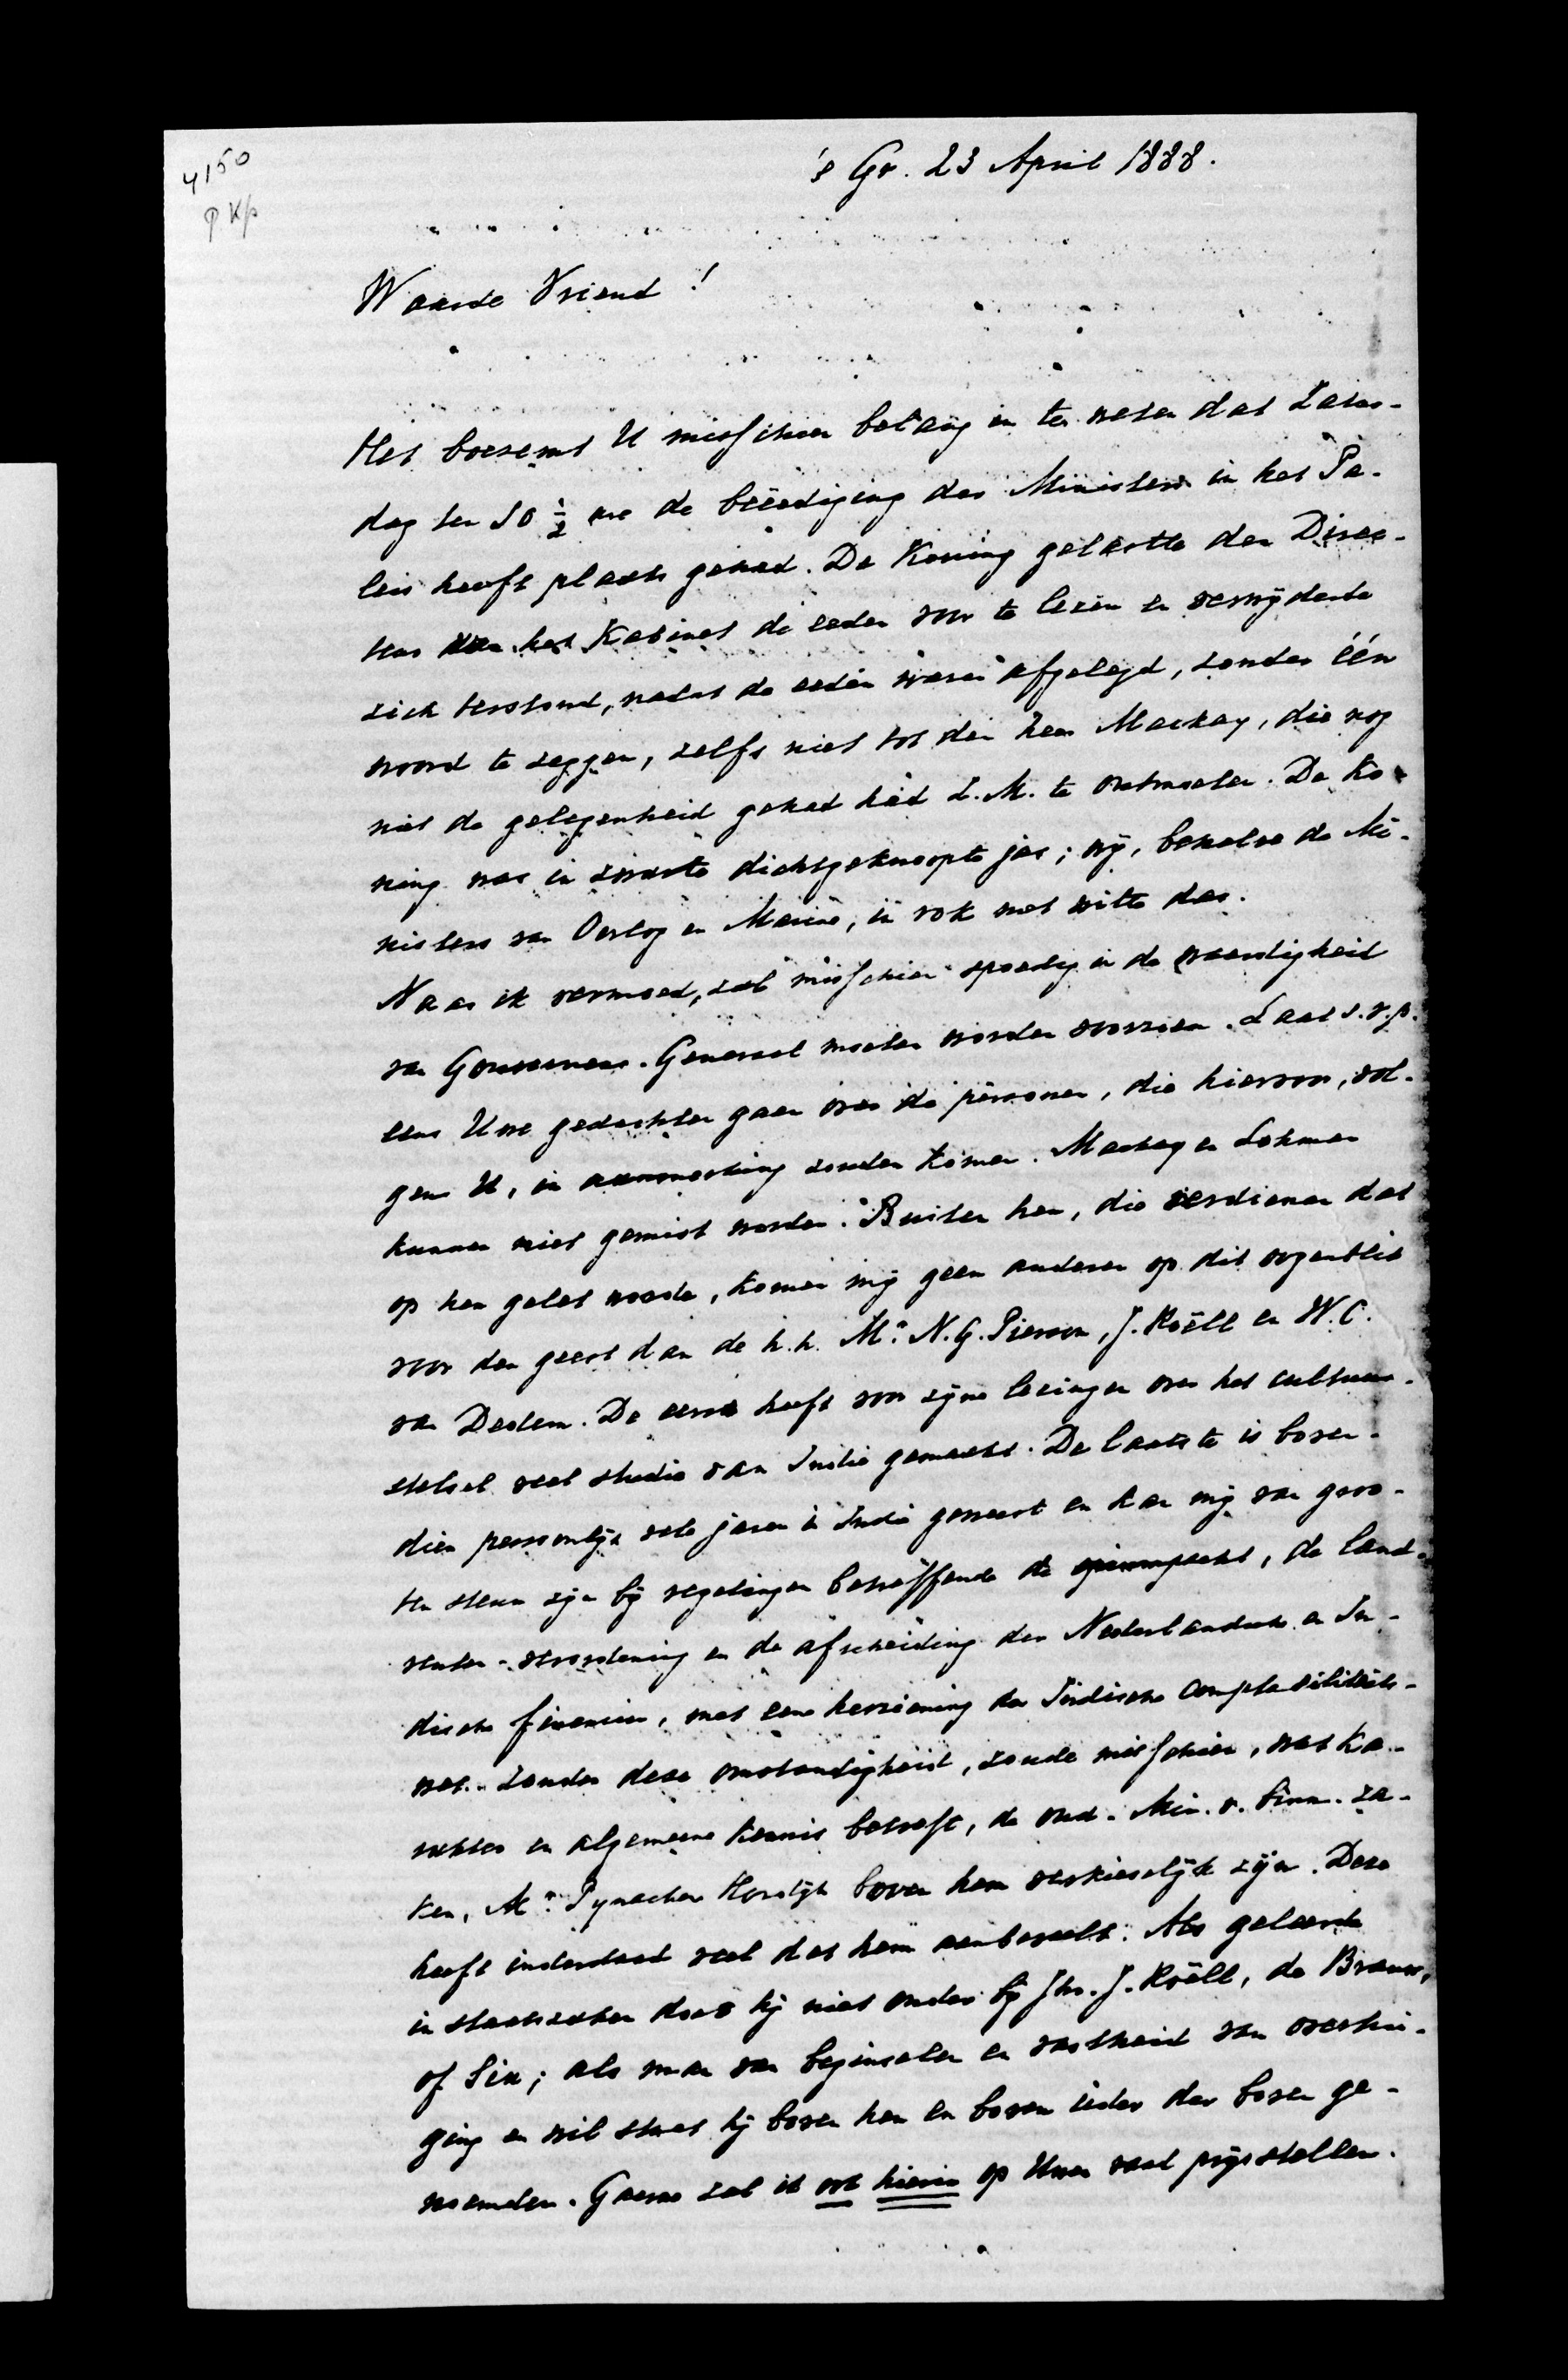 4150
PKp
's Gr. 23 April 1888.
Waarde Vriend!
Het boezemt U misschien belang in te weten dat Zater-
dag ten 10 ½ ure de beëediging der Ministers in het Pa-
leis heeft plaats gehad. De Koning gelastte den Direc-
teur van het Kabinet de eeden voor te lezen en verwijderde
zich terstond, nadat de eeden waren afgelegd, zonder één
woord te zeggen, zelfs niet tot den heer Mackay, die nog
niet de gelegenheid gehad had Z.M. te ontmoeten. De Ko-
ning was in zwarte dichtgeknoopte jas; wij, behalve de Mi-
nisters van Oorlog en Marine, in rok met witte das.
Naar ik vermoed, zal misschien spoedig in de waardigheid
van Gouverneur-Generaal moeten worden voorzien. Laat s.v.p.
eens Uwe gedachten gaan over de personen, die hiervoor, vol-
gens U, in aanmerking zouden komen. Mackay en Lohman
kunnen niet gemist worden. Buiten hen, die verdienen dat
op hen gelet worde, komen mij geen anderen op dit oogenblik
voor den geest dan de h.h. Mr. N.G. Pierson, J. Roëll en W.C.
van Dedem. De eerste heeft voor zijne lezingen over het cultuur-
stelsel veel studie van Indië gemaakt. De laatste is boven-
dien persoonlijk vele jaren in Indië geweest en kan mij van groo-
ten steun zijn bij regelingen betreffende de opiumpacht, de land-
renten-verordening en de afscheiding der Nederlandsche en In-
dische financien, met eene herziening der Indische comptabiliteits-
wet. Zonder deze omstandigheid, zoude misschien, wat ka-
rakter en algemeene kennis betreft, de oud-Min. v. Binn. Za-
ken, Mr. Pynacker Hordijk boven hem verkieselijk zijn. Deze
heeft inderdaad veel dat hem aanbeveelt. Als geleerde
in staatszaken doet hij niet onder bij Jhr. J. Roëll, de Brauw,
of Six; als man van beginselen en vastheid van overtui-
ging en wil staat hij boven hen en boven ieder der boven ge-
noemden. Gaarne zal ik ook hierin op Uwen raad prijsstellen.